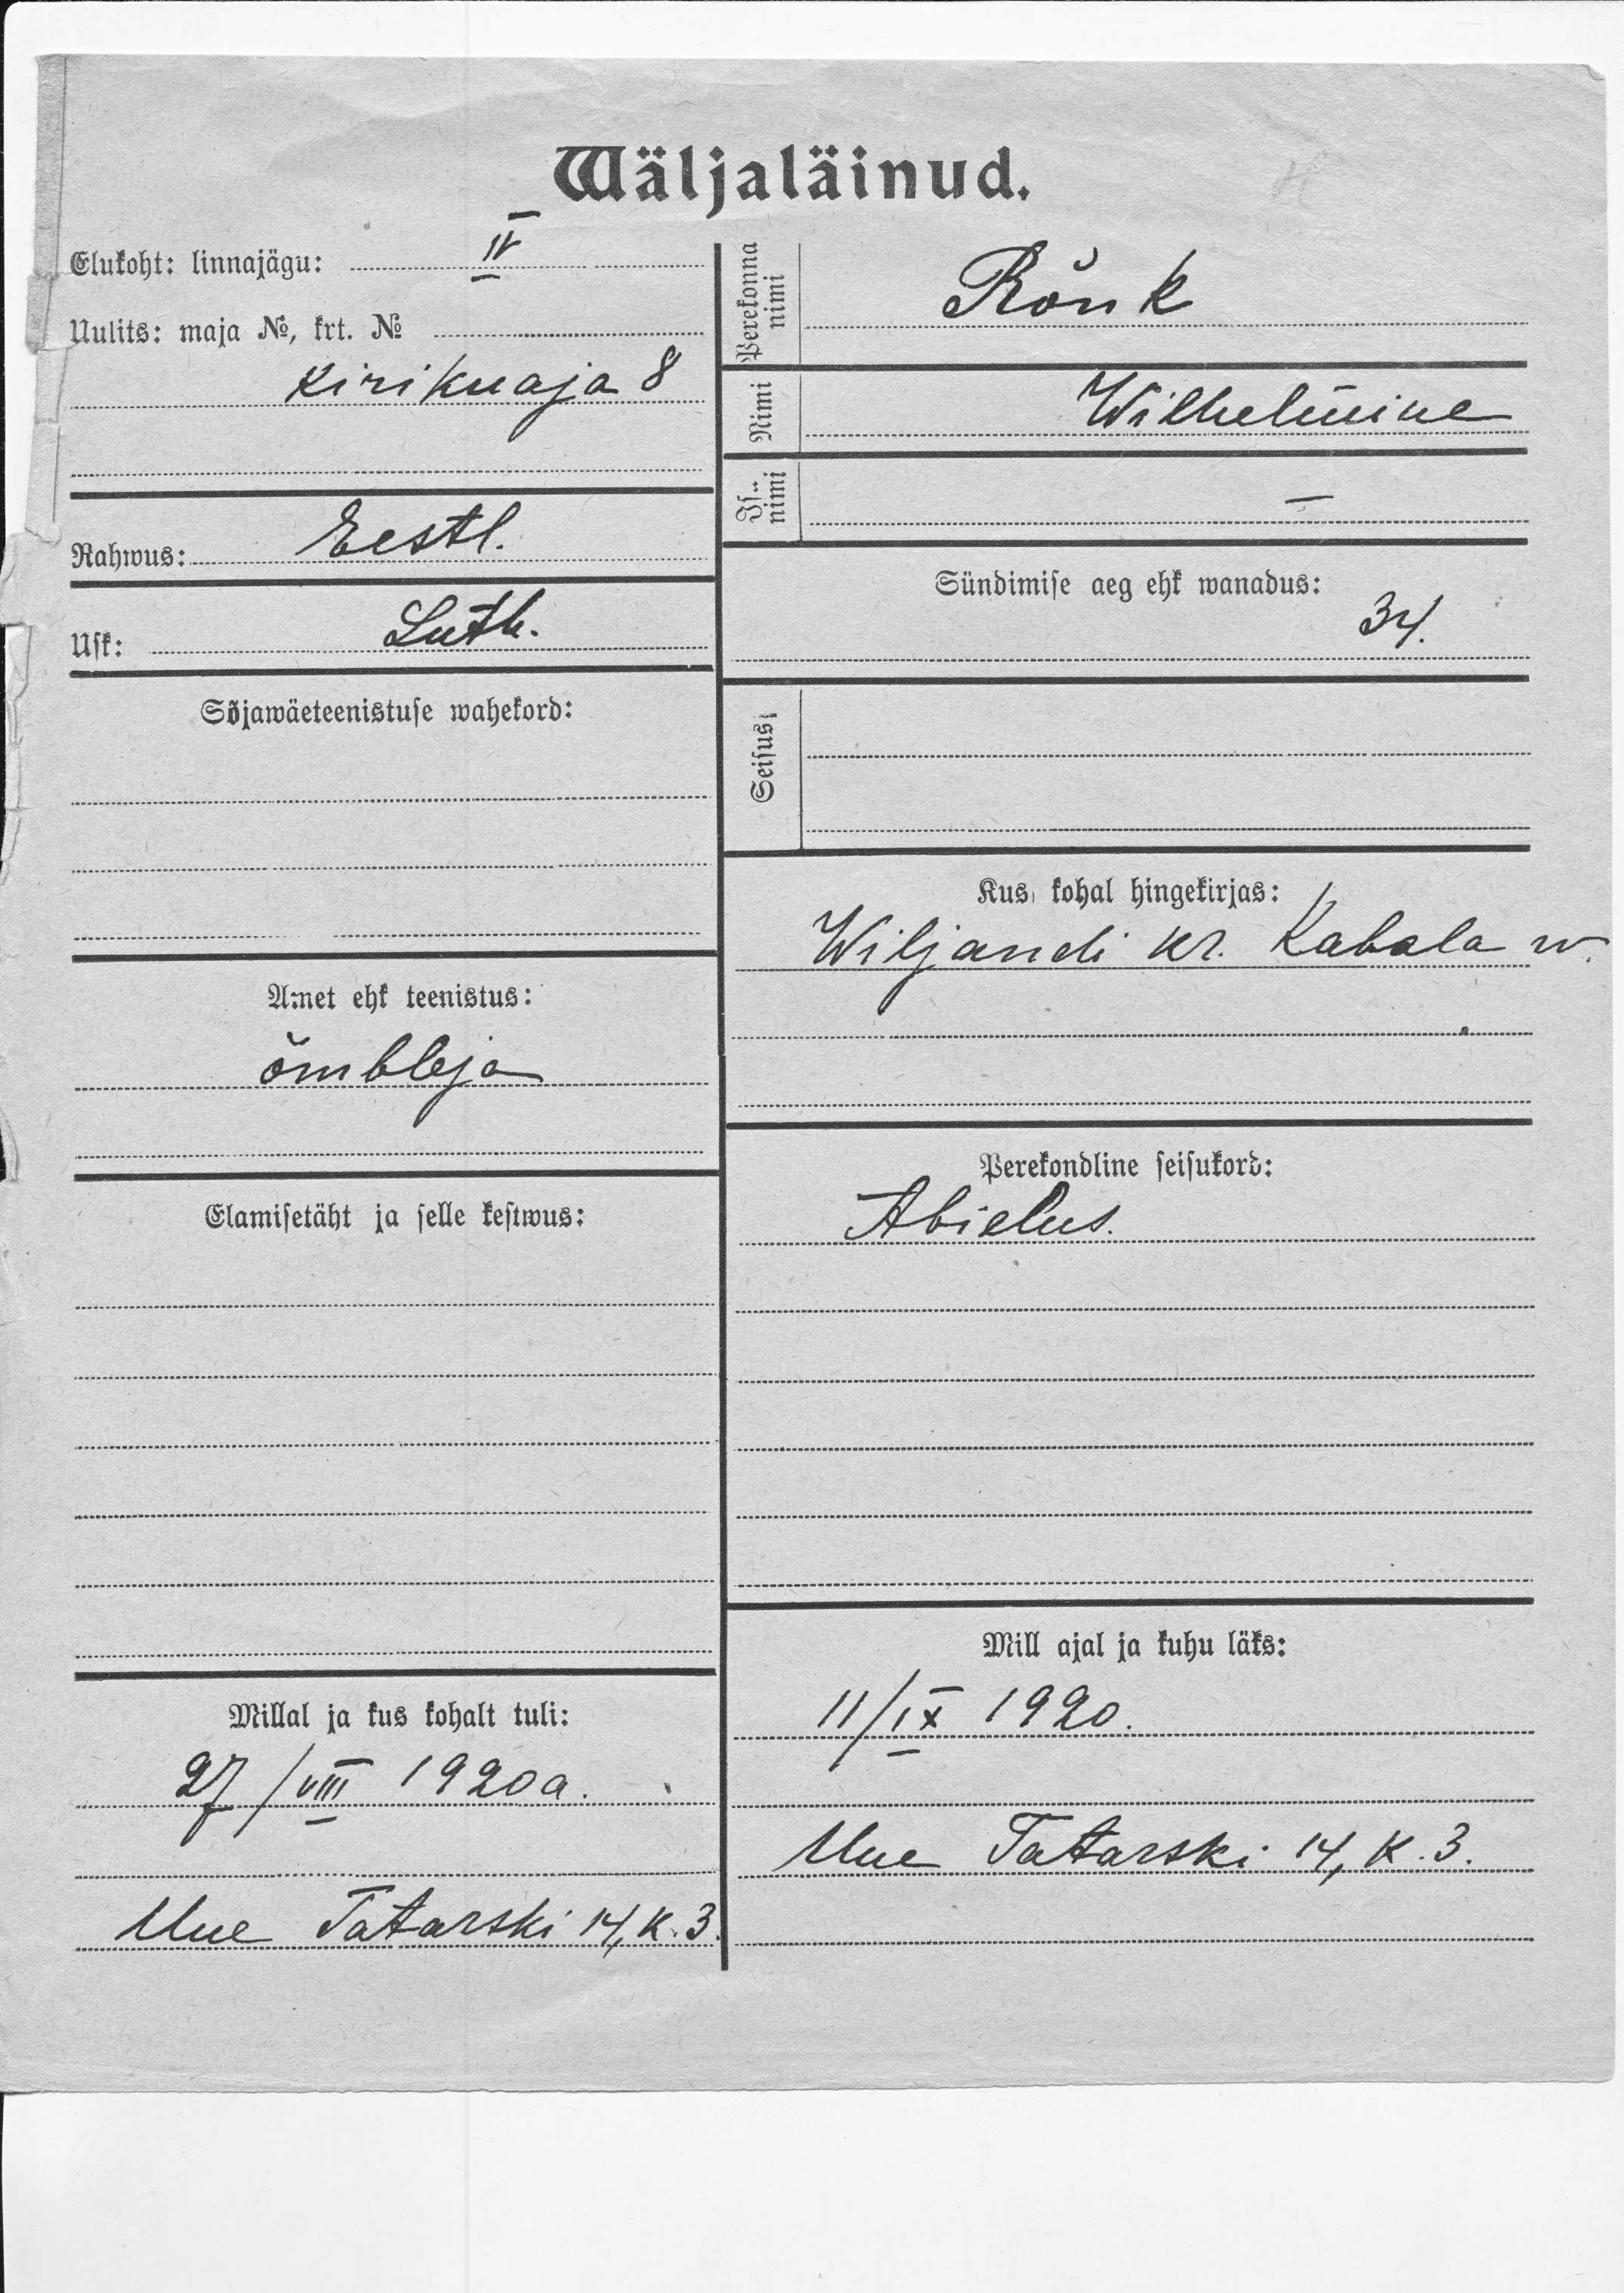 Wäljaläinud.
Elukoht: linnajägu: IV
Uulits: maja №, krt. №
Kirikuaja 8
Rahwus: Eestl.
Usk: Luth.
Sõjawäeteenistuse wahekord:
Amet ehk teenistus:
õmbleja
Elamisetäht ja selle kestwus:
Millal ja kus kohalt tuli:
27/VIII 1920 a.
Uue Tatarski 14, K. 3.
Perekonna nimi Rõnk
Nimi Wilhelmine
Is- nimi —
Sündimise aeg ehk wanadus:
34.
Seisus
Kus kohal hingekirjas:
Wiljandi kr. Kabala w.
Perekondline seisukord:
Abielus.
Mill ajal ja kuhu läks:
11/IX 1920.
Uue Tatarski 14, K. 3.